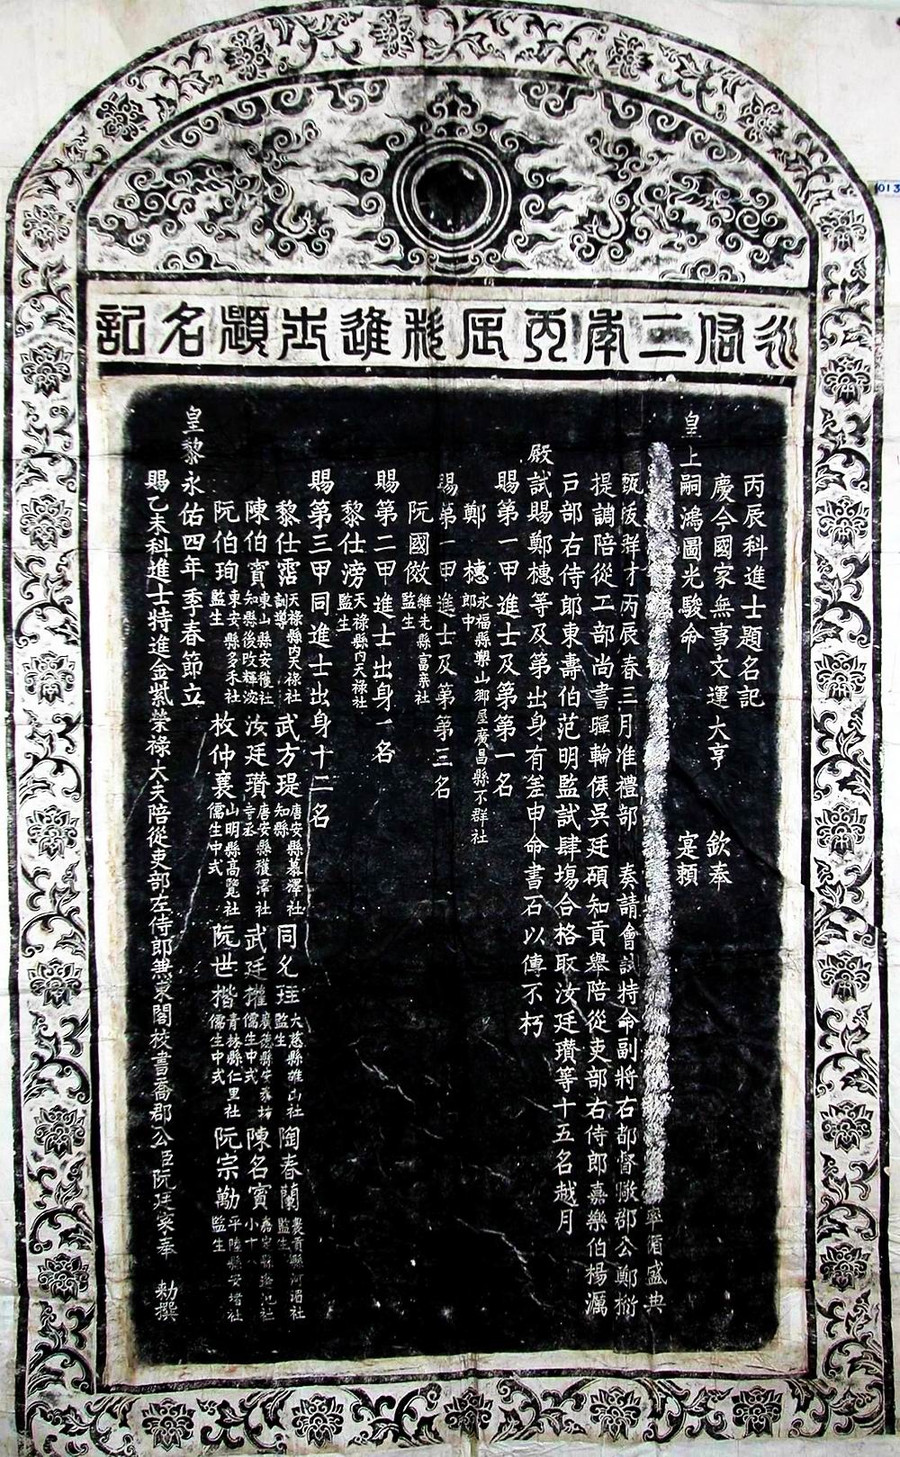 永佑二年丙辰科進士題名記
丙辰科進士題名記
慶今國家無事文運大亨 欽奉
皇上嗣鴻圖光駿命 寔賴
率循盛典
甄拔群才丙辰春三月准禮部 奏請會試特命副將右都督 郡公鄭
提調陪從工部尚書暉輪侯吳廷碩知貢舉陪從吏部右侍郎嘉樂伯楊濿
戶部右侍郎東壽伯范明監試肆場合格取汝廷瓚等十五名越月
殿試賜鄭橞等及第出身有差申命書石以傳不朽
賜第一甲進士及第第一名
鄭橞 永福縣 山鄉屋廣昌縣不群社 郎中
賜第一甲進士及第第三名
阮國傚 維先縣富 社 監生
賜第二甲進士出身一名
黎仕滂 天祿縣內天祿社 監生
賜第三甲同進士出身十二名
黎仕 天祿縣內天祿社 訓導 武方瑅 唐安縣慕澤社 知縣 同允 大慈縣雄山社 監生 陶春蘭 縣河湄社 監生
陳伯賓 東山縣安穫社 知縣後改輝汝 汝廷瓚 唐安縣穫澤社 寺丞 武廷權 廣德縣安 坊 儒生中式 陳名賓 嘉定縣 社 小
阮伯珣 東安縣多禾社 監生 枚仲襄 山明縣高覽社 儒生中式 阮世楷 青林縣仁里社 儒生中式 阮宗 平陸縣安堵社 監生
皇黎永佑四年季春節立
賜乙未科進士特進金紫榮祿大夫陪從吏部左侍郎兼東閣校書喬郡公臣阮廷 奉 勑撰
013